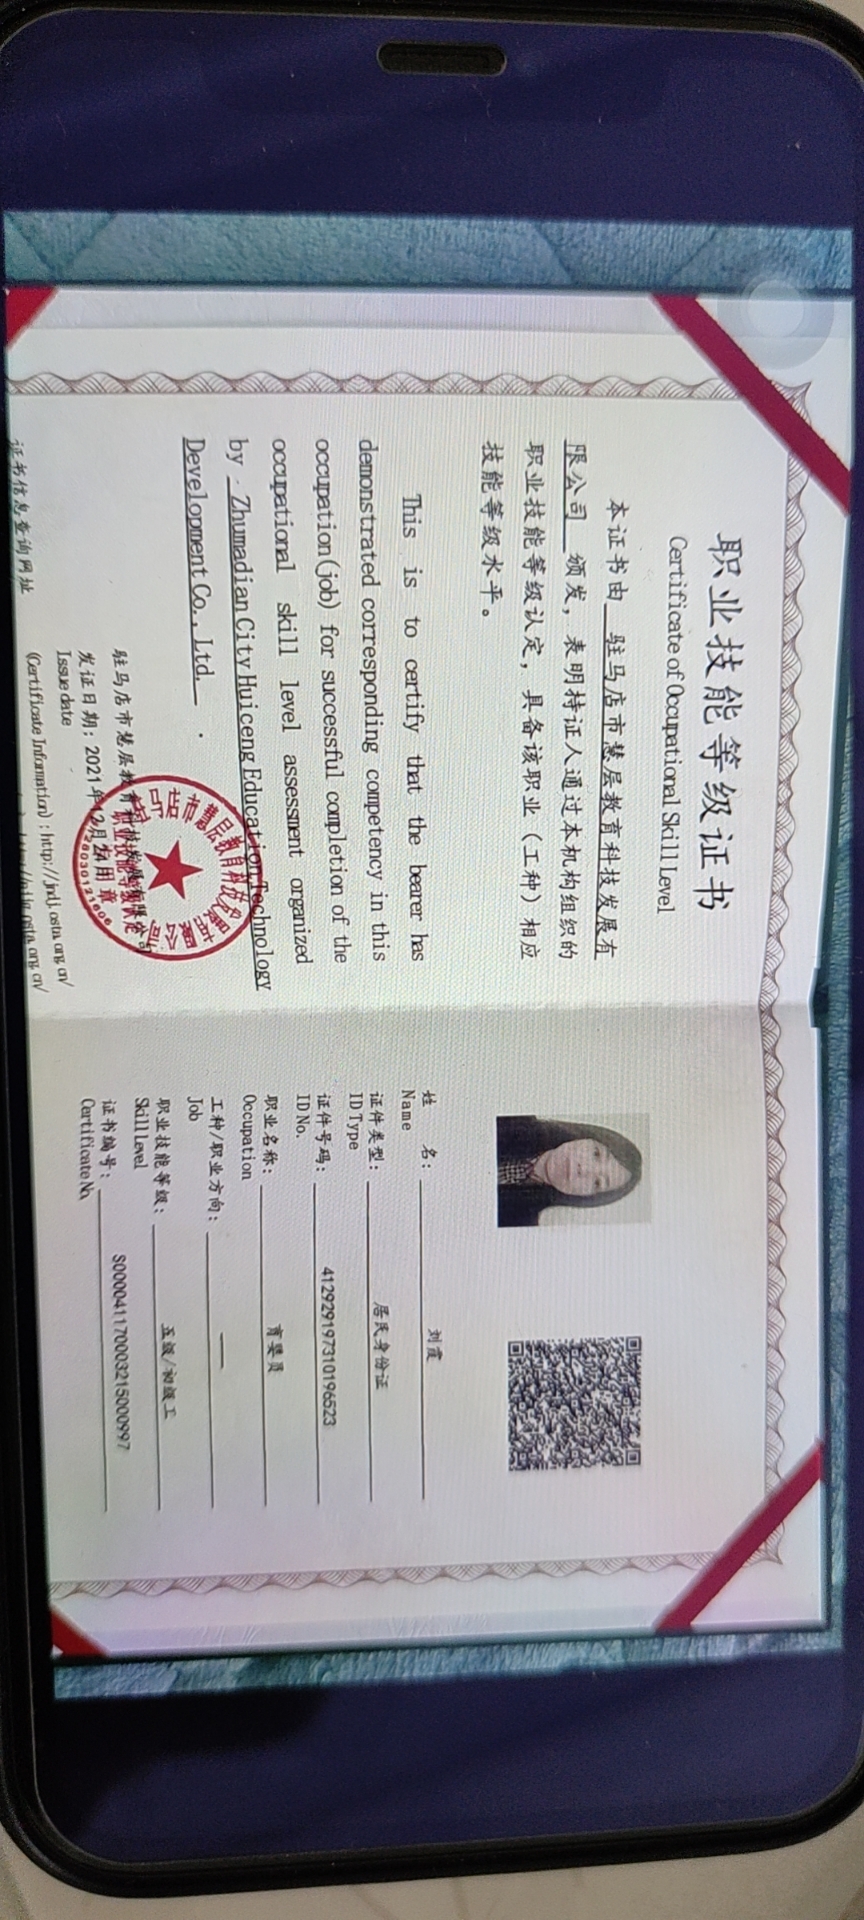 职业技能等级证书
Certificate of Occupational Skill Level
本证书由 驻马店市慧层教育科技发展有
限公司 颁发，表明持证人通过本机构组织的
职业技能等级认定，具备该职业（工种）相应
技能等级水平。
This is to certify that the bearer has
demonstrated corresponding competency in this
occupation(job) for successful completion of the
occupational skill level assessment organized
by Zhumadian City Huiceng Education Technology
Development Co., Ltd.
驻马店市慧层教育科技发展有限公司
发证日期：2021年
Issue date
(Certificate Information)：http://jndj.osta.org.cn/
证书信息查询网址
姓 名： 刘霞
Name
证件类型： 居民身份证
ID Type
证件号码： 412929197310196523
ID No.
职业名称： 育婴员
Occupation
工种/职业方向： —
Job
职业技能等级： 五级/初级工
Skill Level
证书编号： S000041170003215000997
Certificate No.